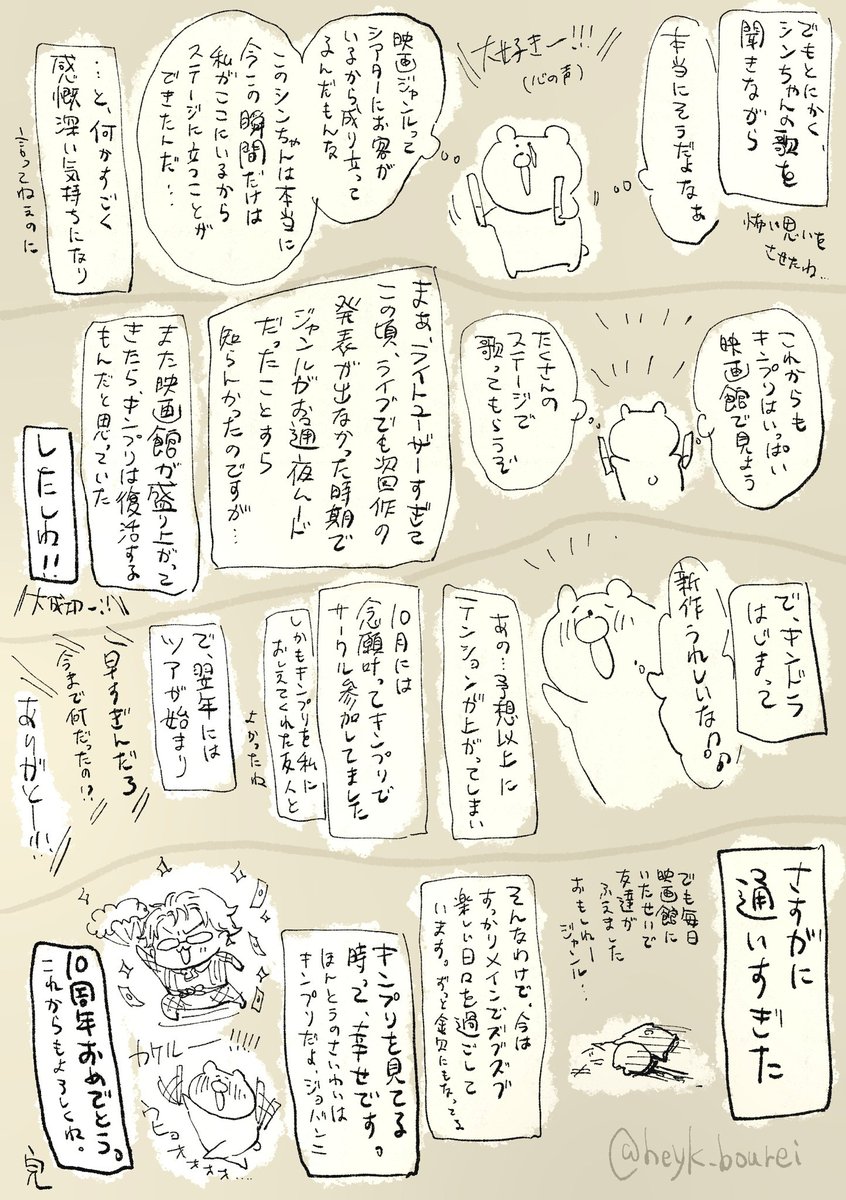 でもとにかく、
シンちゃんの歌を
聞きながら
怖い思いを
させたね…
本当にそうだよなぁ
大好きー!!!
(心の声)
映画ジャンルって
シアターにお客が
いるから成り立って
るんだもんな
このシンちゃんは本当に
今この瞬間だけは
私がここにいるから
ステージに立つことが
できたんだ…
…と、何かすごく
感慨深い気持ちになり
言ってねぇのに
これからも
キンプリはいっぱい
映画館で見よう
たくさんの
ステージで
歌ってもらうぞ
まぁ、ライトユーザーすぎて
この頃、ライブでも次回作の
発表が出なかった時期で
ジャンルがお通夜ムード
だったことすら
知らんかったのですが…
また映画館が盛り上がって
きたら、キンプリは復活する
もんだと思っていた
したしね!!
大成功ー!!
で、キンドラ
はじまって
新作うれしいな♪♪
あの…予想以上に
テンションが上がってしまい
10月には
念願叶ってキンプリで
サークル参加してました
しかもキンプリを私に
おしえてくれた友人と
よかったね
で、翌年には
ツアが始まり
早すぎんだろ
今まで何だったの!?
ありがとー!!
さすがに
通いすぎた
でも毎日
映画館に
いたせいで
友達が
ふえました
おもしれー
ジャンル…
そんなわけで、今は
すっかりメインでズブズブ
楽しい日々を過ごして
います。ずっと金欠にもなってる
キンプリを見てる
時って、幸せです。
ほんとうのさいわいは
キンプリだよ、ジョバンニ
カケルー!!!!!
ウヒョオォォォ……
10周年おめでとう。
これからもよろしくね。
完
@heyk_bourei